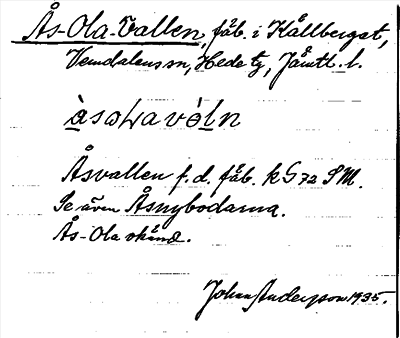 Ås-Ola-Vallen, fäb. i Kållberget,
Vemdalens sn, Hede tg, Jämtl. l.
àsoLavóln
Åsvallen f. d. fäb. k G 72 SM.
Se även Åsnybodarna.
Ås-Ola okänd.
Johan Anderson 1935.